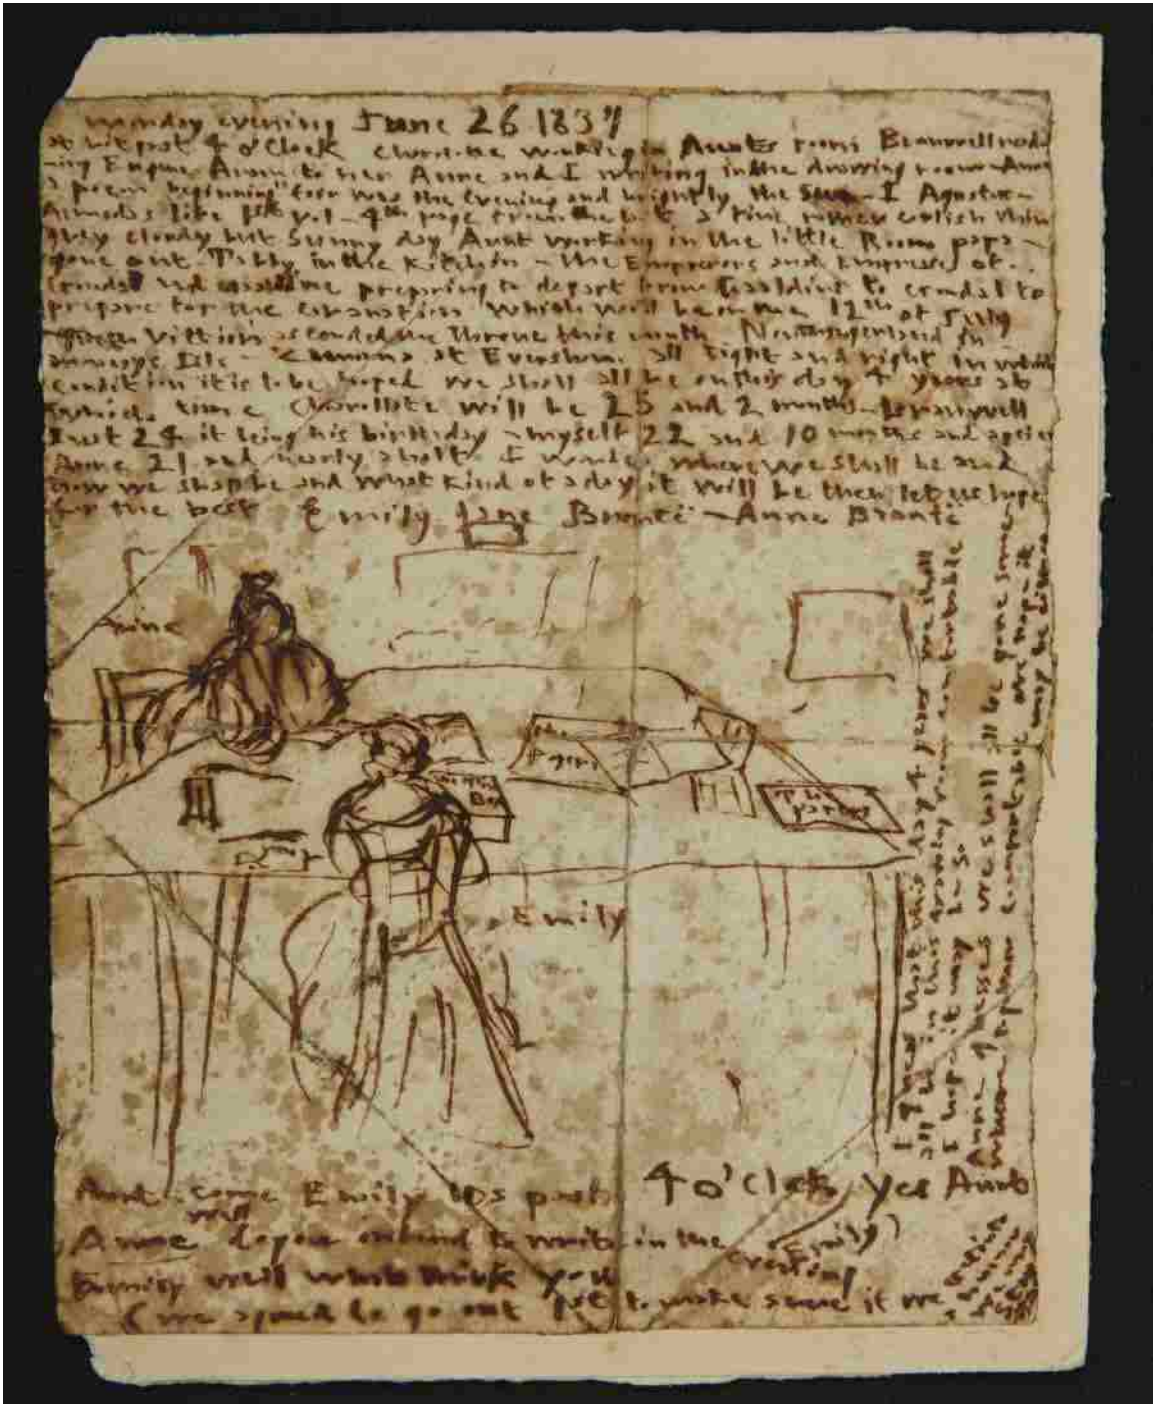 Monday evening June 26 1837
at past 4 o'Clock Charlotte working in Aunts room Branwell read
ing Eugene Aram to her Anne and I writing in the drawing room - Anne
a poem beginning "fair was the Evening and brightly the Sun - I Agustus -
Almedas life 1st vol - 4th page from the last a fine rather coolish thin
grey cloudy but Sunny day Aunt working in the little Room papa -
gone out Tabby in the Kitchin - the Emperors and Empresses of
preparing to depart from Gaaldine to
prepare for the coronation which will be on the 12th of July
Queen Vittiora ascended the throne this month Northangerland in
Monceys Isle - Zamorna at Eversham. all tight and right in which
condition it is to be hoped we shall all be on this day 4 years at
which time Charollotte will be 25 and 2 months - Branwell
just 24 it being his birthday - myself 22 and 10 months and a peice
Anne 21 and nearly a half I wonder where we shall be and
how we shall be and what kind of a day it will be then let us hope
for the best Emily Jane Brontë - Anne Brontë
Anne
The
papers
The
Box
The
papers
Emily
I guess that this day 4 years we shall
all be in this drawing room comfortable
I hope it may be so
Anne guesses we shall all be gone some
where together comfortable We hope it
may be either
Aunt. come Emily its past 4 o'Clock, Yes Aunt
Emily)
Anne well do you intend to write in the
evening
Emily well what think you
(we agreed to go out 1st to make sure if we